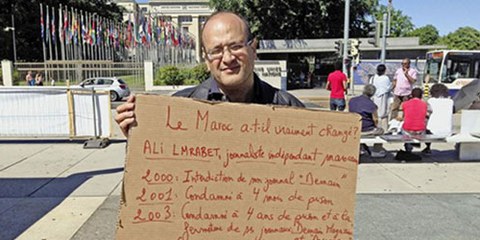 Le Maroc a-t-il vraiment changé?
ALi LMRABET, journaliste indépendant marocain
2000: Interdiction de mon journal "Demain"
2001: Condamné à 4 mois de prison
2003: Condamné à 4 ans de prison et à la
fermeture de ses journaux Demain Magazine